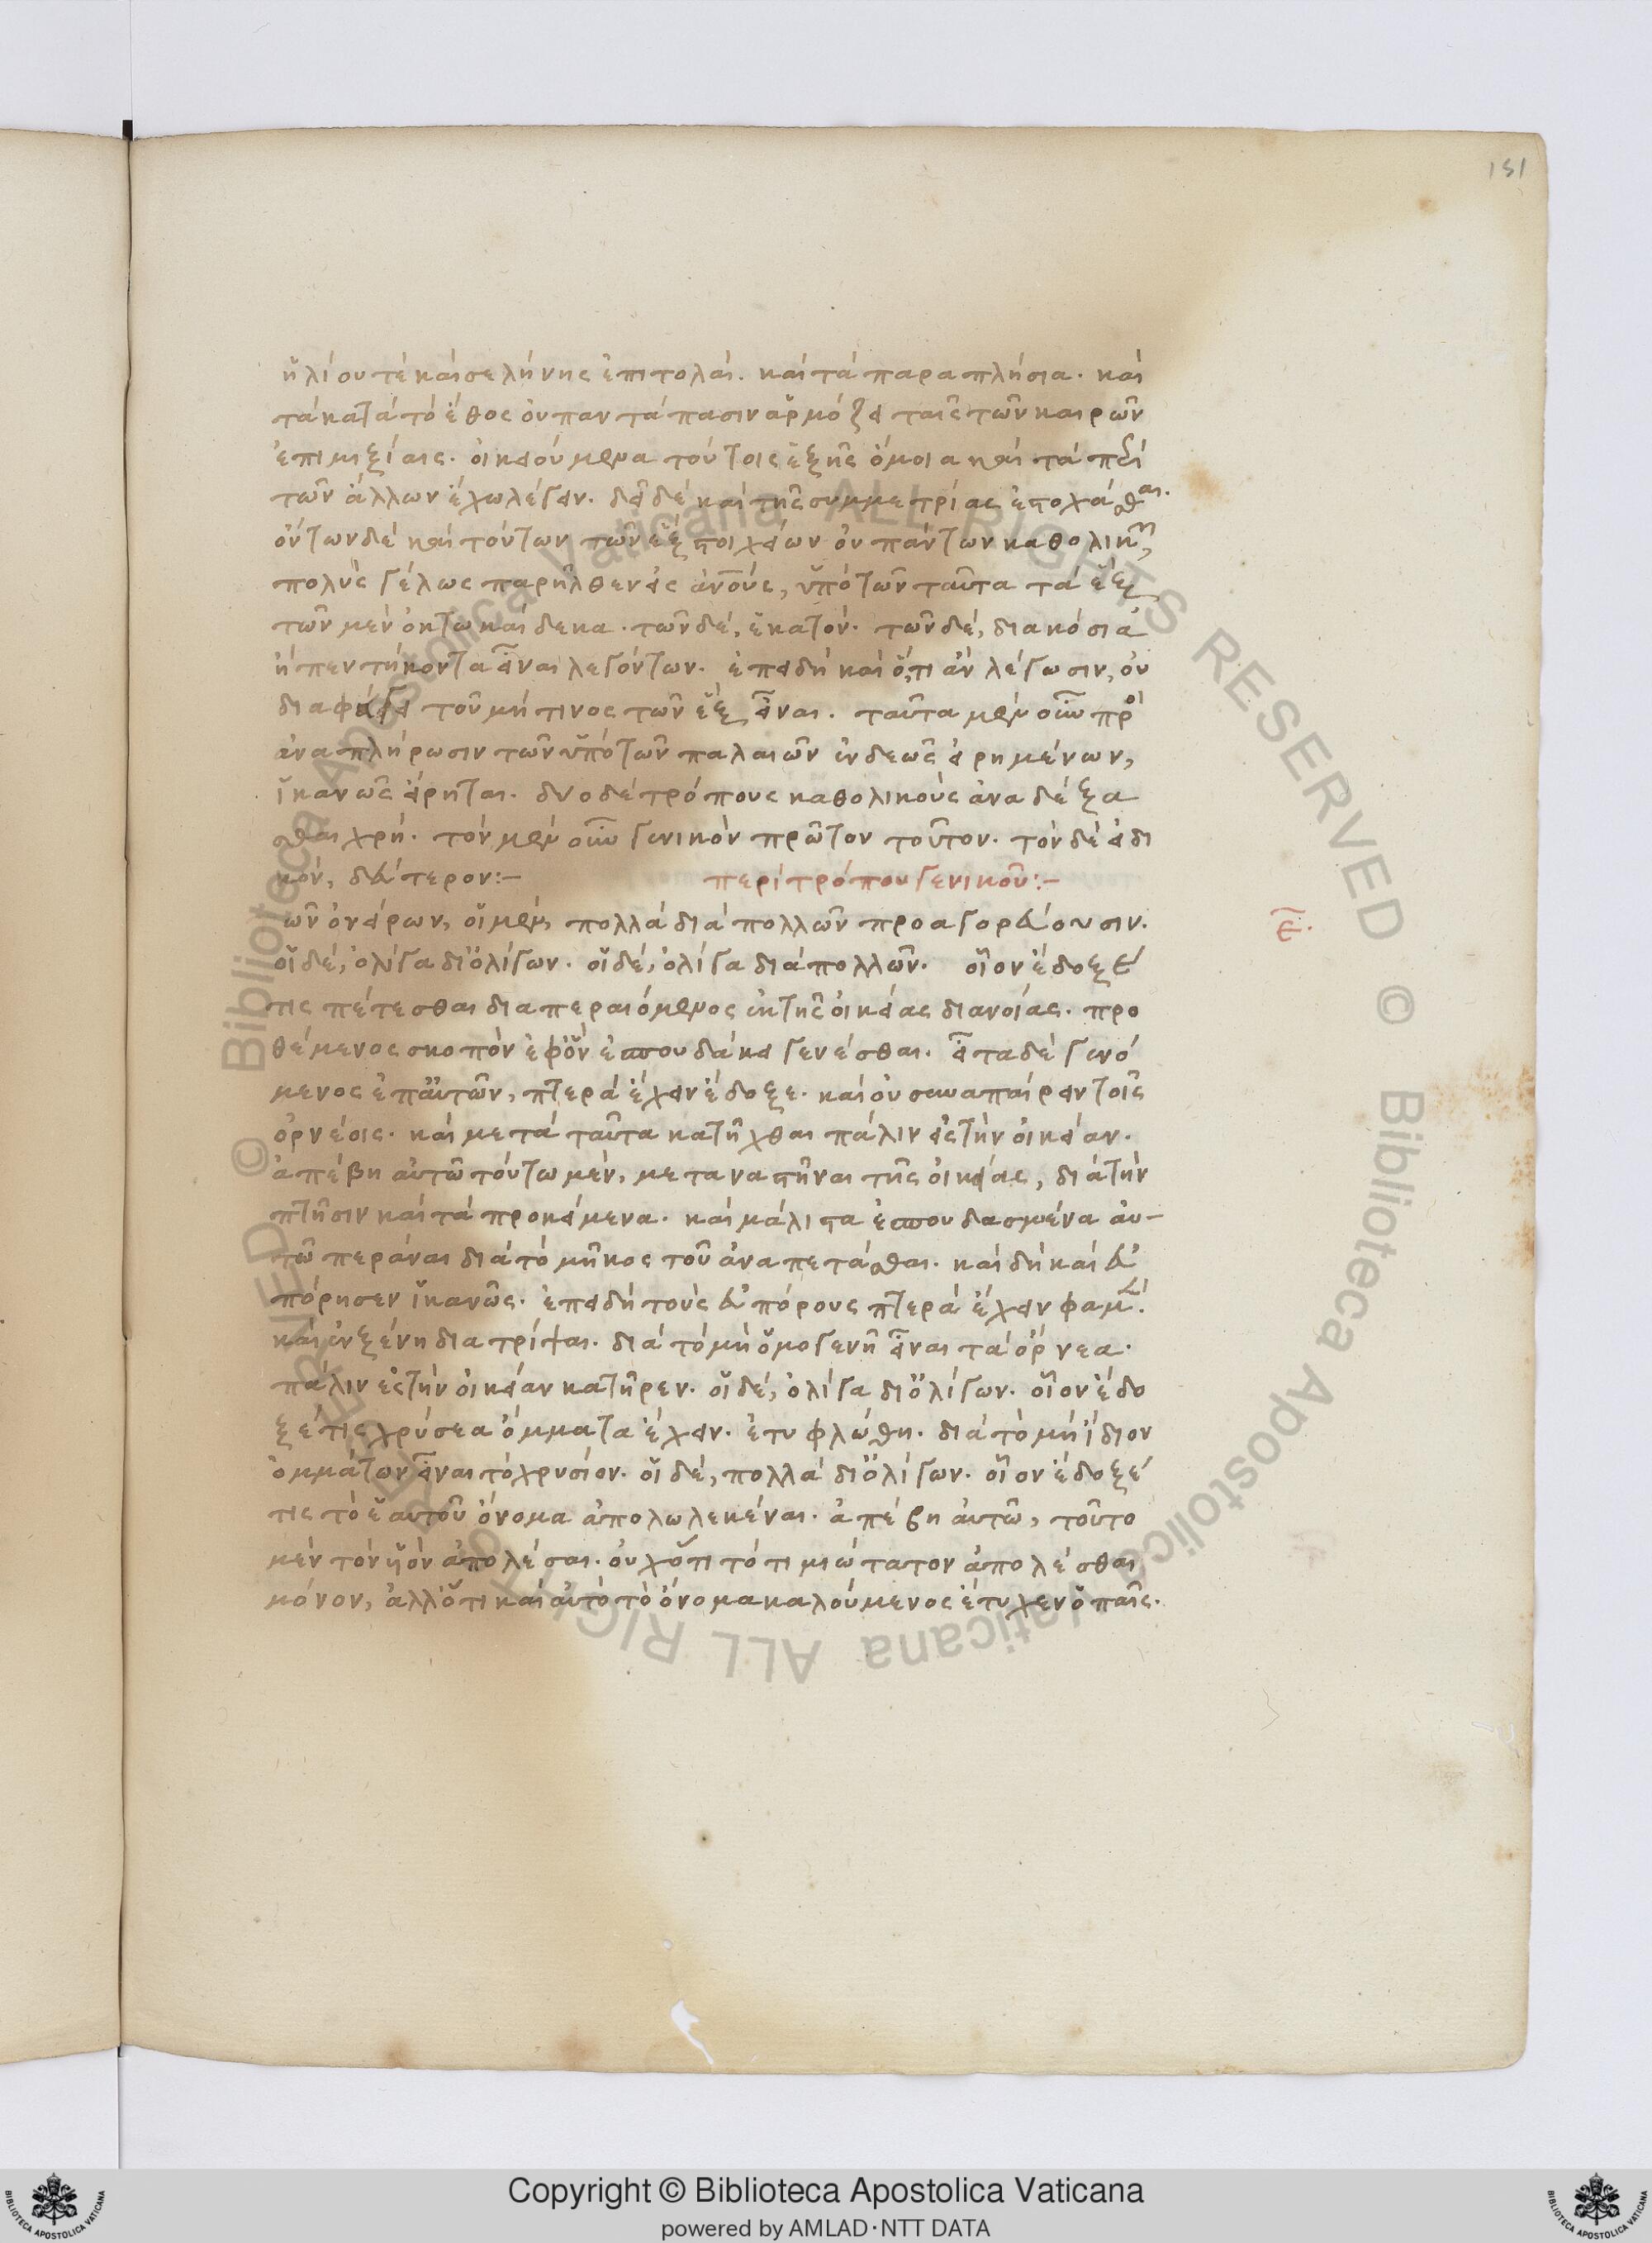 151
ἡλίου τὲ καὶ σελήνης ἐπιτολαί. καὶ τὰ παραπλήσια. καὶ
τὰ κατὰ τὸ ἔθος οὐ παντάπασιν ἁρμόζει ταῖς τῶν καιρῶν
ἐπιμιξίαις. οἰκειούμενα τούτοις ἑξῆς ὅμοια καὶ τὰ περὶ
τῶν ἄλλων ἐχώλευσαν. δεῖ δὲ καὶ τῆς συμμετρίας στοχάσθαι.
ὄντων δὲ καὶ τούτων τῶν ἓξ στοιχείων οὐ πάντων καθολικῶν,
πολὺς γέλως παρῆλθεν εἰς ἀνους, ὑπὸ τῶν ταῦτα τὰ ἓξ
τῶν μὲν ὀκτωκαίδεκα. τῶν δὲ, ἑκατὸν. τῶν δὲ, διακόσια
ἢ πεντήκοντα εἶναι λεγόντων. ἐπειδὴ καὶ ὅ,τι ἂν λέγωσιν, οὐ
διαφεύγει τοῦ μή τινος τῶν ἓξ εἶναι. ταῦτα μὲν οὖν πρὸ
ἀναπλήρωσιν τῶν ὑπὸ τῶν παλαιῶν ἐνδεῶς εἰρημένων,
ἱκανῶς εἴρηται. δύο δὲ τρόπους καθολικοὺς ἀναδέξα
σθαι χρή. τὸν μὲν οὖν γενικὸν πρῶτον τοῦτον. τὸν δὲ εἰδι
κὸν, δεύτερον:–
περὶ τρόπου γενικοῦ:–
ῶν ὀνείρων, οἱ μὲν, πολλὰ διὰ πολλῶν προαγορεύουσιν.
ε.
οἱ δὲ, ὀλίγα δι' ὀλίγων. οἱ δὲ, ὀλίγα διὰ πολλῶν. οἷον ἔδοξέ
τις πέτεσθαι διαπεραιόμενος ἐκ τῆς οἰκείας διανοίας. προ
θέμενος σκοπὸν ἐφ' ὃν ἐσπουδάκει γενέσθαι. εἶτα δὲ γενό
μενος ἐπ' αὐτῶν, πτερὰ ἔχειν ἔδοξε. καὶ οὐ συναπαίρειν τοῖς
ὀρνέοις. καὶ μετὰ ταῦτα κατῆχθαι πάλιν εἰς τὴν οἰκείαν.
ἀπέβη αὐτῶ τούτω μὲν, μεταναστῆναι τῆς οἰκείας, διὰ τὴν
πτῆσιν καὶ τὰ προκείμενα. καὶ μάλιστα ἐσπουδασμένα αὐ–
τῶ περάναι διὰ τὸ μῆκος τοῦ ἀναπετάσθαι. καὶ δὴ καὶ εὐ
πόρησεν ἱκανῶς. ἐπειδὴ τοὺς εὐπόρους πτερὰ ἔχειν φαμέν.
καὶ ἐν ξένη διατρίψαι. διὰ τὸ μὴ ὁμογενῆ εἶναι τὰ ὄρνεα.
πάλιν εἰς τὴν οἰκείαν κατῆρεν. οἱ δὲ, ὀλίγα δι' ὀλίγων. οἷον ἔδο
ξέ τις χρύσεα ὄμματα ἔχειν. ἐτυφλώθη. διὰ τὸ μὴ ἴδιον
ὀμμάτων εἶναι τὸ χρυσίον. οἱ δὲ, πολλὰ δι' ὀλίγων. οἷον ἔδοξέ
τις τὸ ἑαυτοῦ ὄνομα ἀπολωλεκέναι. ἀπέβη αὐτῶ, τοῦτο
μὲν τὸν υἱὸν ἀπολέσαι. οὐχ ὅτι τὸ τιμιώτατον ἀπολέσθαι
μόνον, ἀλλ' ὅτι καὶ αὐτὸ τὸ ὄνομα καλούμενος ἔτυχεν ὁ παῖς.
© Biblioteca Apostolica Vaticana ALL RIGHTS RESERVED © Biblioteca Apostolica Vaticana ALL RIGHTS RESERVED
Copyright © Biblioteca Apostolica Vaticana
powered by AMLAD·NTT DATA
BIBLIOTECA APOSTOLICA VATICANA
BIBLIOTECA APOSTOLICA VATICANA